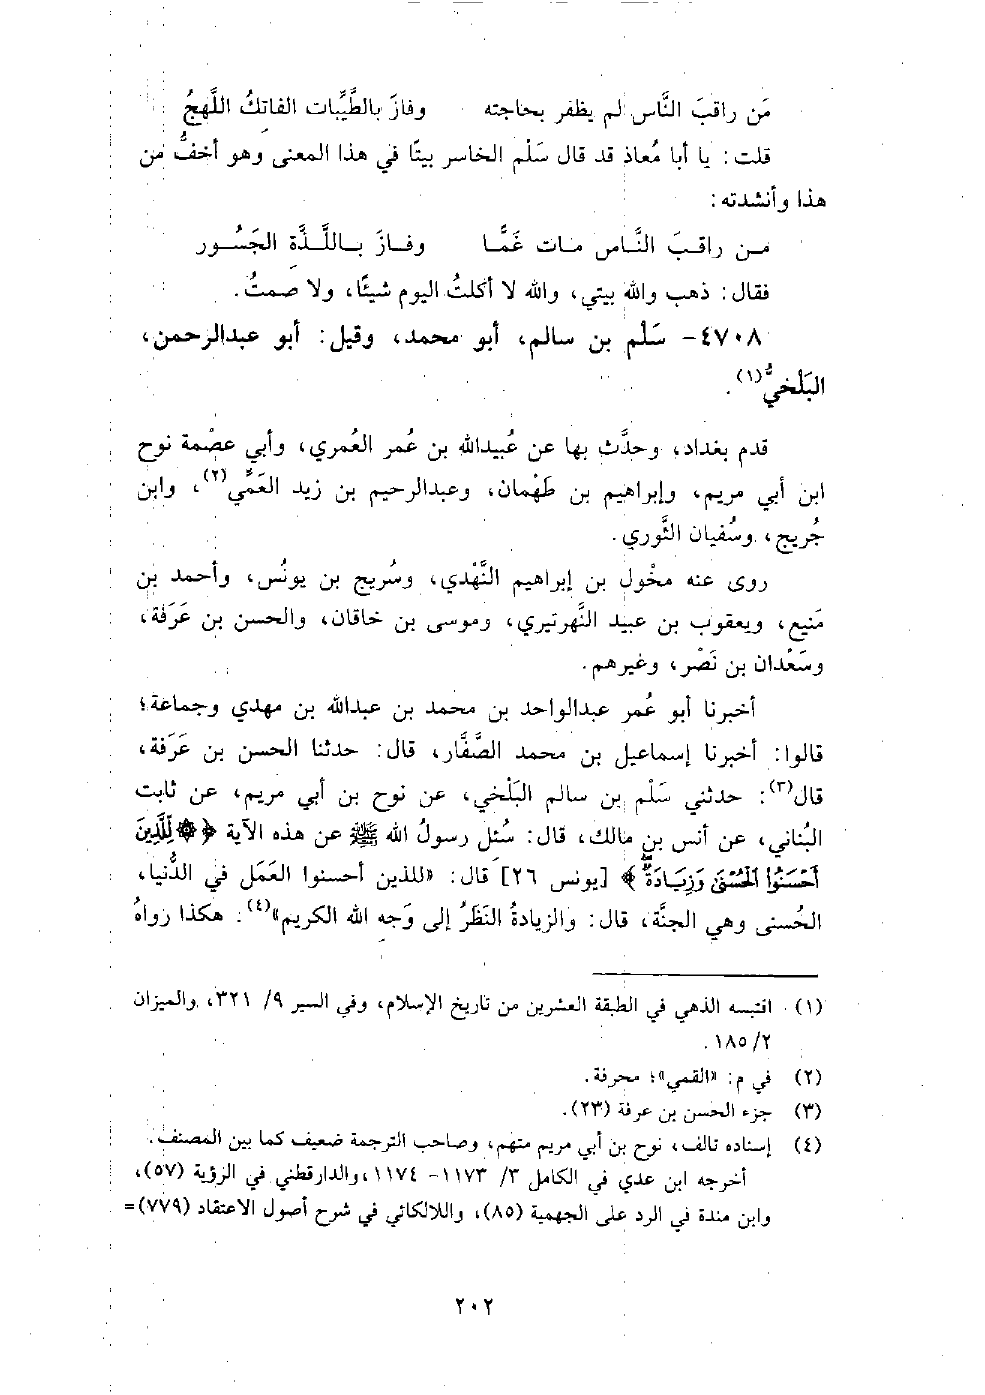 مَن راقبَ النَّاس لم يظفر بحاجته وفازَ بالطَّيِّبات الفاتكُ اللَّهجُ
قلت: يا أبا مُعاذ قد قال سَلْم الخاسر بيتًا في هذا المعنى وهو أخفُّ من
هذا وأنشدته:
مـن راقـبَ النَّـاس مـات غَمًّـا وفـازَ بـاللَّـذَّة الجَسُـور
فقال: ذهب والله بيتي، والله لا أكلتُ اليوم شيئًا، ولا صمتُ.
٤٧٠٨- سَلْم بن سالم، أبو محمد، وقيل: أبو عبدالرحمن،
البَلْخيُّ(١).
قدم بغداد، وحدَّث بها عن عُبيدالله بن عُمر العُمري، وأبي عصْمة نوح
ابن أبي مريم، وإبراهيم بن طَهْمان، وعبدالرحيم بن زيد العَمِّي(٢)، وابن
جُريج، وسُفيان الثَّوري.
روى عنه مخْول بن إبراهيم النَّهْدي، وسُريج بن يونُس، وأحمد بن
مَنيع، ويعقوب بن عبيد النَّهرتيري، وموسى بن خاقان، والحسن بن عَرَفة،
وسَعْدان بن نَصْر، وغيرهم.
أخبرنا أبو عُمر عبدالواحد بن محمد بن عبدالله بن مهدي وجماعة؛
قالوا: أخبرنا إسماعيل بن محمد الصَّفَّار، قال: حدثنا الحسن بن عَرَفة،
قال(٣): حدثني سَلْم بن سالم البَلْخي، عن نوح بن أبي مريم، عن ثابت
البُناني، عن أنس بن مالك، قال: سُئل رسولُ الله ﷺ عن هذه الآية ﴿۞ لِّلَّذِينَ
أَحْسَنُوا۟ ٱلْحُسْنَىٰ وَزِيَادَةٌۖ﴾ [يونس ٢٦] قال: «للذين أحسنوا العَمَل في الدُّنيا،
الحُسنى وهي الجنَّة، قال: والزيادةُ النَظَرُ إلى وَجه الله الكريم»(٤). هكذا رواهُ
(١) اقتبسه الذهبي في الطبقة العشرين من تاريخ الإسلام، وفي السير ٩/ ٣٢١، والميزان
٢/ ١٨٥.
(٢) في م: «القمي»؛ محرفة.
(٣) جزء الحسن بن عرفة (٢٣).
(٤) إسناده تالف، نوح بن أبي مريم متهم، وصاحب الترجمة ضعيف كما بين المصنف.
أخرجه ابن عدي في الكامل ٣/ ١١٧٣- ١١٧٤، والدارقطني في الرؤية (٥٧)،
وابن مندة في الرد على الجهمية (٨٥)، واللالكائي في شرح أصول الاعتقاد (٧٧٩)=
٢٠٢